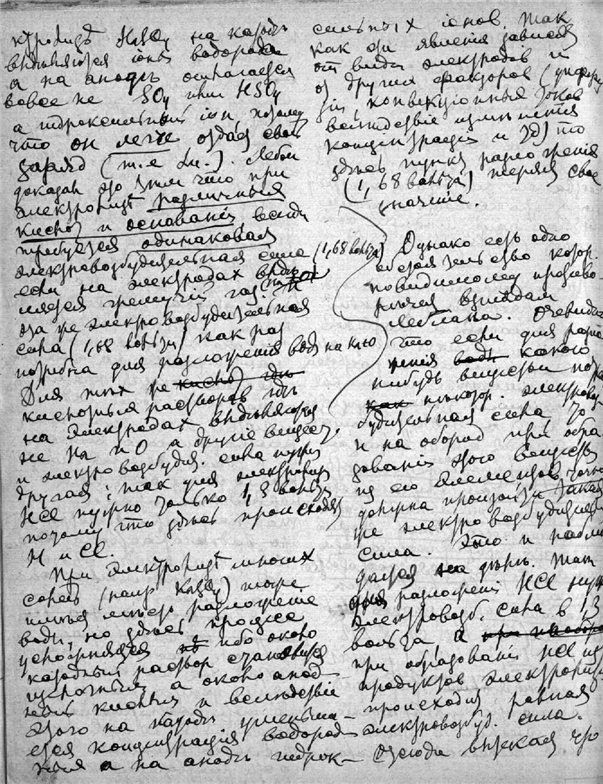 H₂SO₄ на катодѣ
выдѣляются іоны водорода
а на анодѣ осаждается
вовсе не SO₄ или HSO₄
а гидроксильный іон, потому
что он легче отдает свой
заряд (т.е. эл.). Леблан
доказал это тѣм что при
электролизѣ различных
кислот и оснований всегда
требуется одинаковая
электровозбудительная сила (1,68 вольта)
если на электродах выдѣ-
ляется гремучій газ.
эта же электровозбудительная
сила (1,68 вольта) как раз
нужна для разложенія воды на H и O
Для тѣх же
растворов гдѣ
на электродах выдѣляются
не H и O а другіе вещест.
и электровозбудит. сила нужна
другая; так для электролиза
HCl нужно только 1,3 вольта
потому что здѣсь происходят
H и Cl.
При электролизѣ многих
солей (напр. K₂SO₄) тоже
имѣет мѣсто разложеніе
воды, но здѣсь процесс
ибо около
катода раствор становится
щелочным, а около анод-
кислым и вслѣдствіе
этого на катодѣ уменьша-
ется концентрація водород-
а на анодѣ гидрок-
сильных іонов. Так
как эти явленія зависят
от вида электродов и
от других факторов
конвекціонные токи
вслѣдствіе
концентраціи и др) то
здѣсь пункт разложенія
(1,68 вольта) теряет свое
значеніе.
Однако есть одно
обстоятельство котор.
повидимому противо-
рѣчит взглядам
Леблана. Очевидно
что если для разло-
женія какого
нибудь вещества нужна
некотор. электровоз-
будительная сила то
и на оборот при обра-
зованіи этого вещества
из его элементов
должна произойти такая
же электровозбудительная
сила. Это и наблю-
дается на дѣлѣ. Так
для разложенія HCl нужна
электровозб. сила в 1,3
вольта а
при образованіи HCl из
продуктов электролиза
происходит равная
электровозбуд. сила.
Отсюда вытекает что